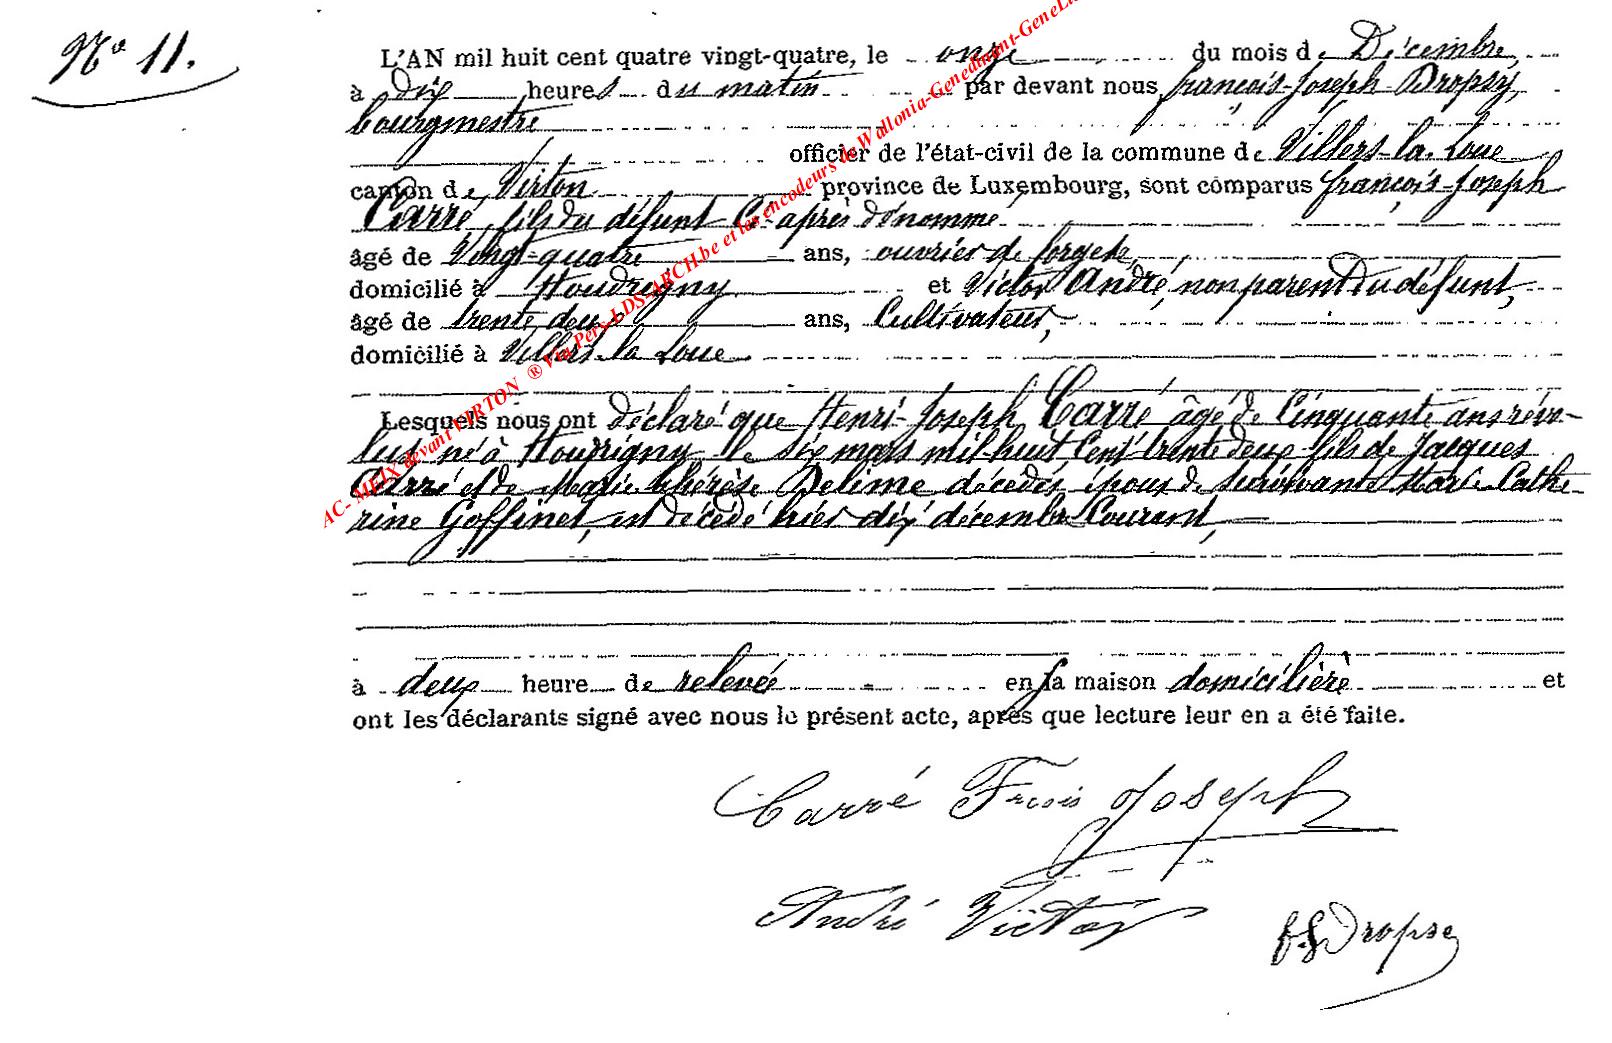 N° 11.
L'AN mil huit cent quatre vingt-quatre, le onze du mois de Décembre,
à dix heures du matin par devant nous, françois-Joseph Dropsy,
bourgmestre
officier de l'état-civil de la commune de Villers-la-Loue
canton de Virton province de Luxembourg, sont comparus françois-Joseph
Carré, fils du défunt Ci-après dénommé
âgé de Vingt-quatre ans, ouvrier de forges,
domicilié à Houdrigny et Victor André, non parent du défunt,
âgé de trente deux ans, Cultivateur,
domicilié à Villers-la-Loue
Lesquels nous ont déclaré que Henri-Joseph Carré âgé de Cinquante ans révo-
lus né à Houdrigny le six mars mil huit Cent trente deux fils de Jacques
Carré et de Marie Thérèse Delime décédés, époux de survivante Marie Cathe-
rine Goffinet, est décédé hier dix décembre Courant,
à deux heure de relevée en sa maison domicilière et
ont les déclarants signé avec nous le présent acte, après que lecture leur en a été faite.
Carré Frcois Joseph
André Victor
f J Dropsy
AC- MEIX devant VIRTON ® Via Pers-LDS-ARCH.be et les encodeurs de Wallonia-Genedinant-GeneLux